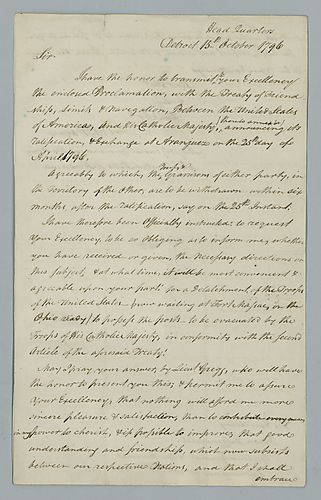 Head Quarters
Detroit 15th October 1796
Sir
I have the honor to transmit to your Excellency
the enclosed Proclamation, with the Treaty of Friend
ship, Limits & Navigation, Between the United States
of America, And His Catholic Majesty, thereto annexed, announcing its
ratification, & Exchange at Aranjuez on the 25th day of
April 1796.
Agreeably to which the Troops & Garrisons of either party, in
the territory of the Other, are to be withdrawn within six
months after the ratification, say on the 25th Instant.
I have therefore been Officially instructed to request
Your Excellency, to be so Obliging, as to inform me, whether
you have received or given, the Necessary directions on
this subject, & at what time, it will be most convenient &
agreeable upon your part, for a Detachment, of the Troops
of the United States (now waiting at Fort Massac, on the
Ohio ready) to possess the posts to be evacuated by the
Troops of His Catholic Majesty, in conformity with the second
Article of the aforesaid Treaty.
May I pray your answer by Lieut Gregg, who will have
the honor to present you this; & permit me to assure
Your Excellency, that nothing will afford me more
sincere pleasure & satisfaction, than to contribute every thing
in my power to cherish, & if possible to improve, that good
understanding and friendship, which now subsists
between our respective Nations, and that I shall
embrace